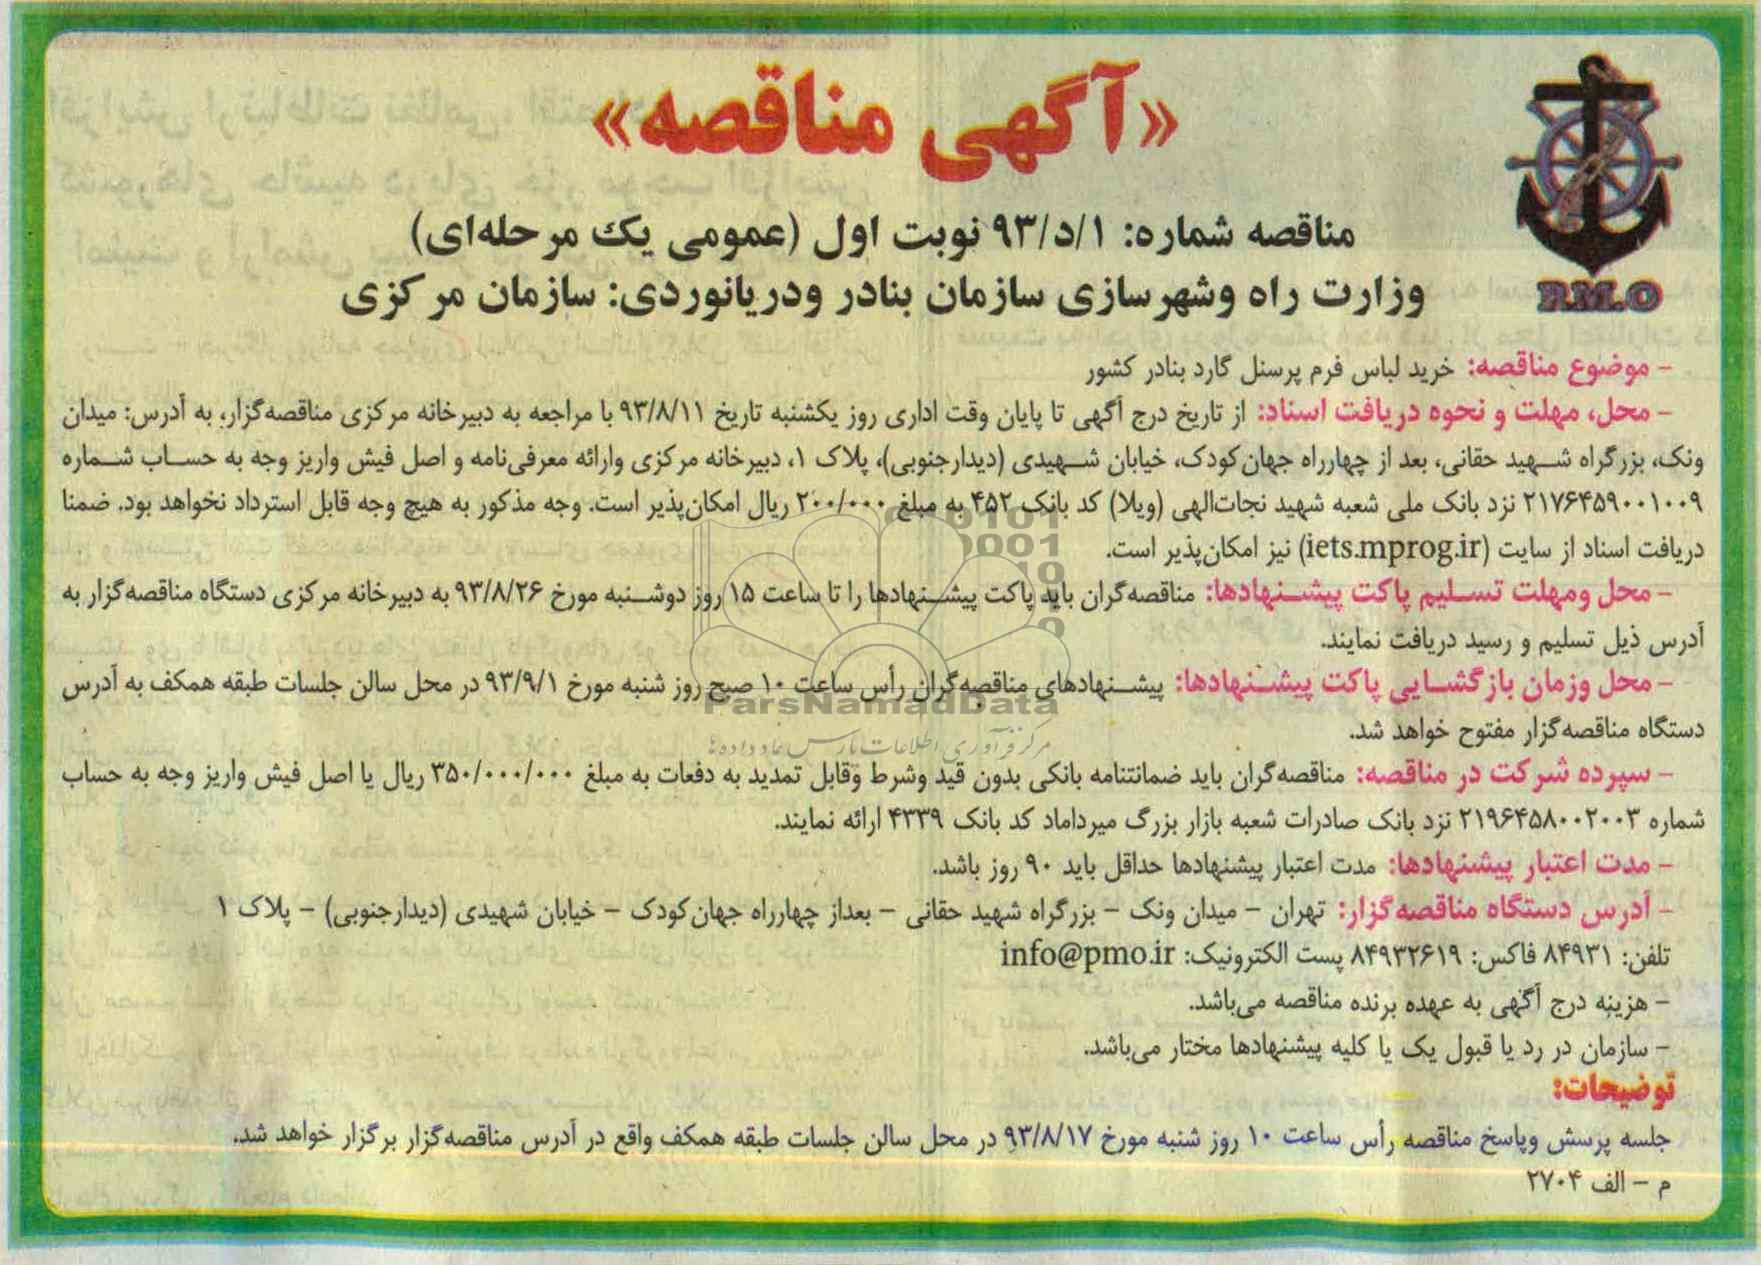 «آگهی مناقصه»
مناقصه شماره: ۹۳/د/۱ نوبت اول (عمومی یک مرحله‌ای)
وزارت راه وشهرسازی سازمان بنادر ودریانوردی: سازمان مرکزی
P.M.O
- موضوع مناقصه: خرید لباس فرم پرسنل گارد بنادر کشور
- محل، مهلت و نحوه دریافت اسناد: از تاریخ درج آگهی تا پایان وقت اداری روز یکشنبه تاریخ ۹۳/۸/۱۱ با مراجعه به دبیرخانه مرکزی مناقصه‌گزار، به آدرس: میدان
ونک، بزرگراه شهید حقانی، بعد از چهارراه جهان‌کودک، خیابان شهیدی (دیدارجنوبی)، پلاک ۱، دبیرخانه مرکزی وارائه معرفی‌نامه و اصل فیش واریز وجه به حساب شماره
۲۱۷۶۴۵۹۰۰۱۰۰۹ نزد بانک ملی شعبه شهید نجات‌الهی (ویلا) کد بانک ۴۵۲ به مبلغ ۲۰۰/۰۰۰ ریال امکان‌پذیر است. وجه مذکور به هیچ وجه قابل استرداد نخواهد بود. ضمنا
دریافت اسناد از سایت (iets.mprog.ir) نیز امکان‌پذیر است.
- محل ومهلت تسلیم پاکت پیشنهادها: مناقصه‌گران باید پاکت پیشنهادها را تا ساعت ۱۵ روز دوشنبه مورخ ۹۳/۸/۲۶ به دبیرخانه مرکزی دستگاه مناقصه‌گزار به
آدرس ذیل تسلیم و رسید دریافت نمایند.
- محل وزمان بازگشایی پاکت پیشنهادها: پیشنهادهای مناقصه‌گران رأس ساعت ۱۰ صبح روز شنبه مورخ ۹۳/۹/۱ در محل سالن جلسات طبقه همکف به آدرس
دستگاه مناقصه‌گزار مفتوح خواهد شد.
ParsNamadData
مرکز فرآوری اطلاعات پارس نماد داده‌ها
- سپرده شرکت در مناقصه: مناقصه‌گران باید ضمانتنامه بانکی بدون قید وشرط وقابل تمدید به دفعات به مبلغ ۳۵۰/۰۰۰/۰۰۰ ریال یا اصل فیش واریز وجه به حساب
شماره ۲۱۹۶۴۵۸۰۰۲۰۰۳ نزد بانک صادرات شعبه بازار بزرگ میرداماد کد بانک ۴۳۳۹ ارائه نمایند.
- مدت اعتبار پیشنهادها: مدت اعتبار پیشنهادها حداقل باید ۹۰ روز باشد.
- آدرس دستگاه مناقصه‌گزار: تهران - میدان ونک - بزرگراه شهید حقانی - بعداز چهارراه جهان‌کودک - خیابان شهیدی (دیدارجنوبی) - پلاک ۱
تلفن: ۸۴۹۳۱ فاکس: ۸۴۹۳۲۶۱۹ پست الکترونیک: info@pmo.ir
- هزینه درج آگهی به عهده برنده مناقصه می‌باشد.
- سازمان در رد یا قبول یک یا کلیه پیشنهادها مختار می‌باشد.
توضیحات:
جلسه پرسش وپاسخ مناقصه رأس ساعت ۱۰ روز شنبه مورخ ۹۳/۸/۱۷ در محل سالن جلسات طبقه همکف واقع در آدرس مناقصه‌گزار برگزار خواهد شد.
م - الف ۲۷۰۴